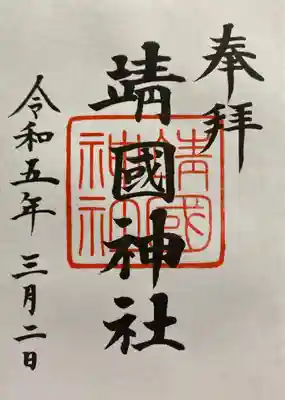 奉拝
靖國神社
靖國
神社
令和五年 三月二日